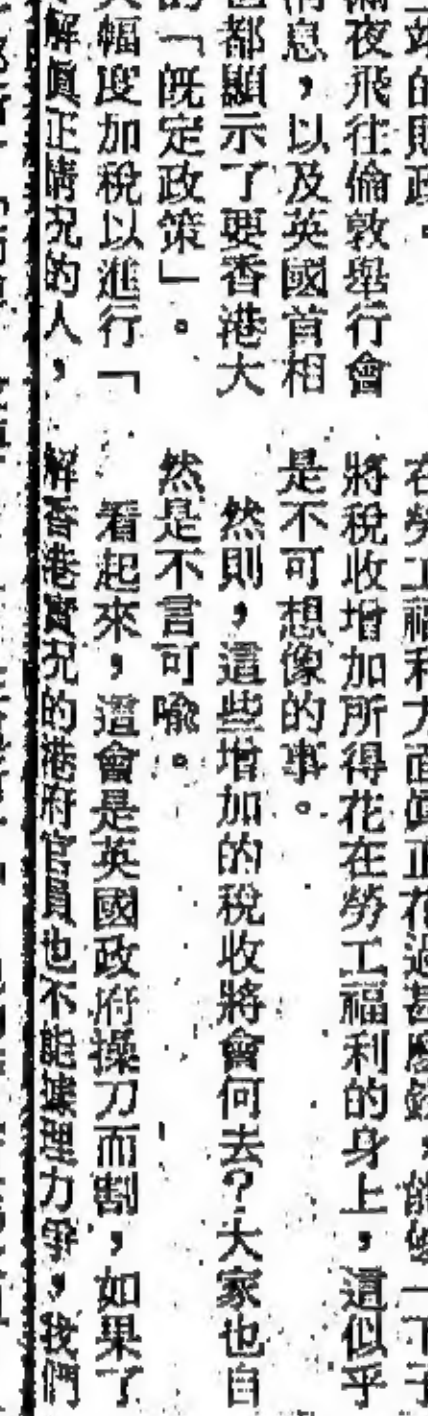 的財政。
夜飛往倫敦舉行會
消息，以及英國首相
也都顯示了要香港大
的「既定政策」。
幅度加稅以進行「
解眞正情況的人，
在勞工福利方面眞正花過甚麼錢，能够一下子
將稅收增加所得花在勞工福利的身上，這似乎
是不可想像的事。
然則，這些增加的稅收將會何去？大家也自
然是不言可喻。
看起來，這會是英國政府操刀而割，如果了
解香港實況的港府官員也不能據理力爭，我們